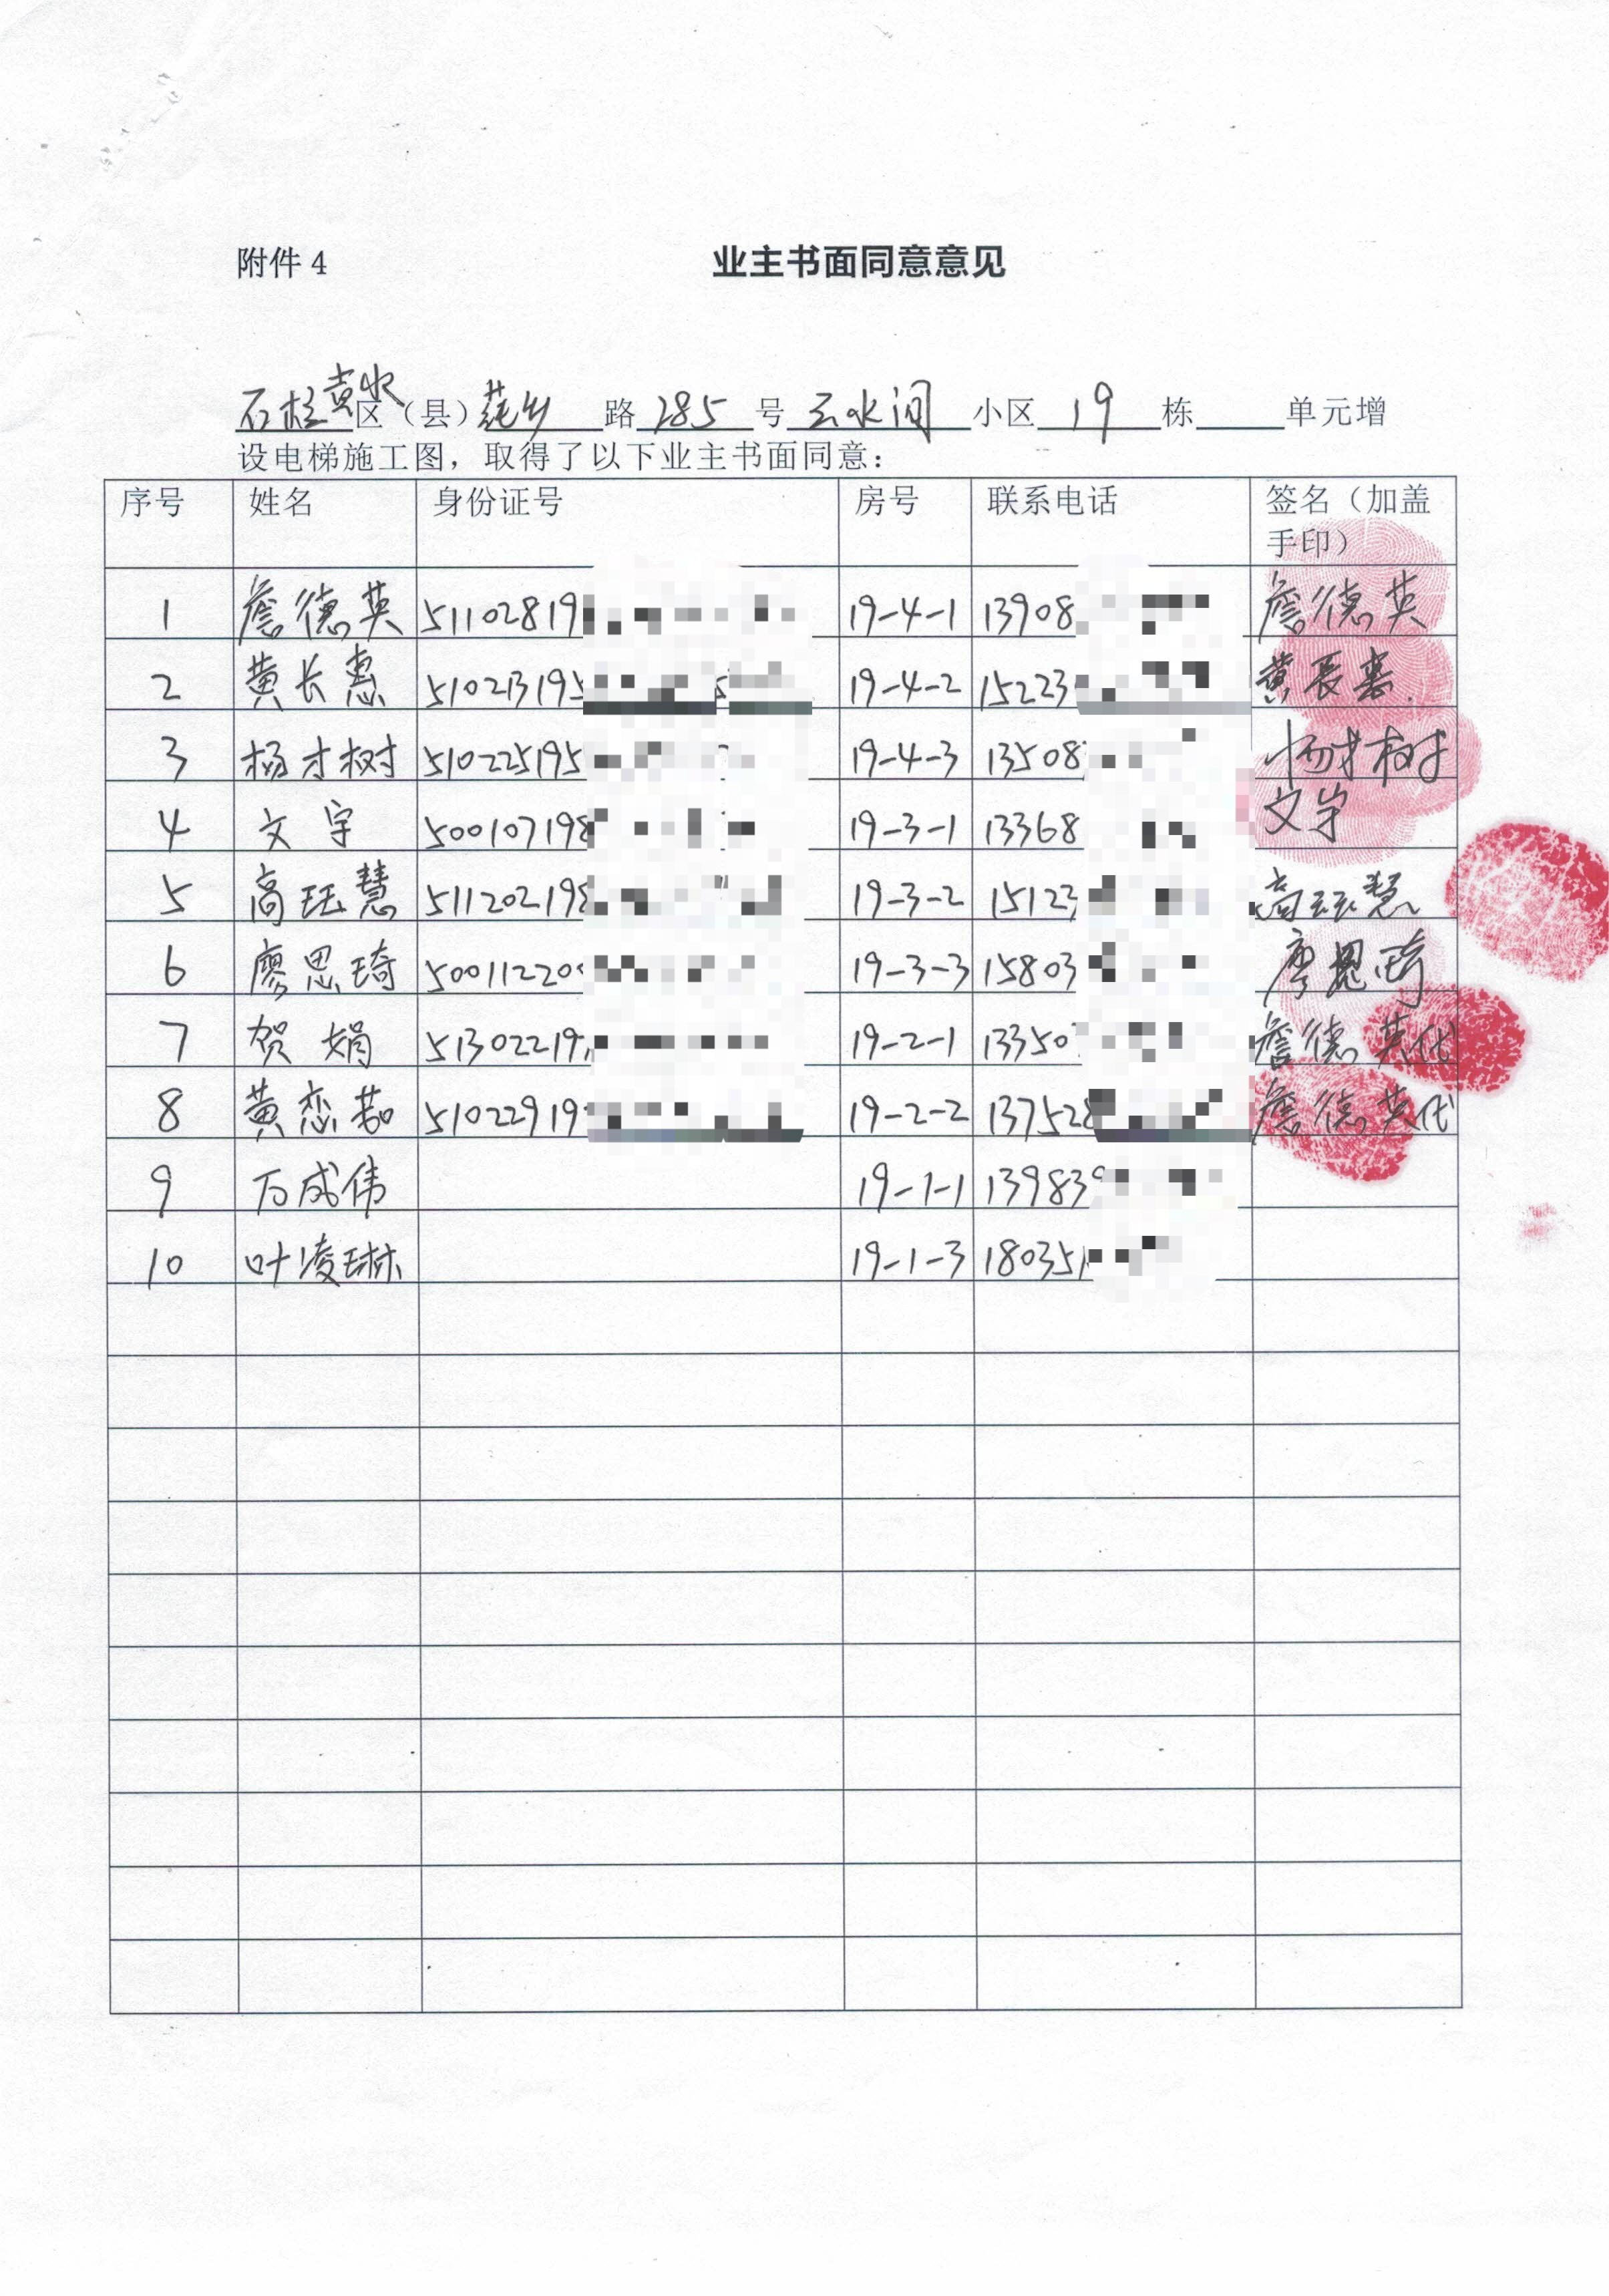 附件 4 业主书面同意意见
石柱黄水区（县）莼乡路 285 号 云水间 小区 19 栋 单元增
设电梯施工图，取得了以下业主书面同意：
序号 姓名 身份证号 房号 联系电话 签名（加盖
手印）
1 詹德英 51102819 19-4-1 13908 詹德英
2 黄长惠 510213195 19-4-2 15223 黄长惠
3 杨才树 510225195 19-4-3 13508 杨才树
4 文宇 500107198 19-3-1 13368 文宇
5 高珏慧 511202198 19-3-2 15123 高珏慧
6 廖思琦 50011220 19-3-3 15803 廖思琦
7 贺娟 51302219 19-2-1 13350 詹德英代
8 黄恋茹 51022919 19-2-2 137528 詹德英代
9 万成伟 19-1-1 139839
10 叶凌琳 19-1-3 180351